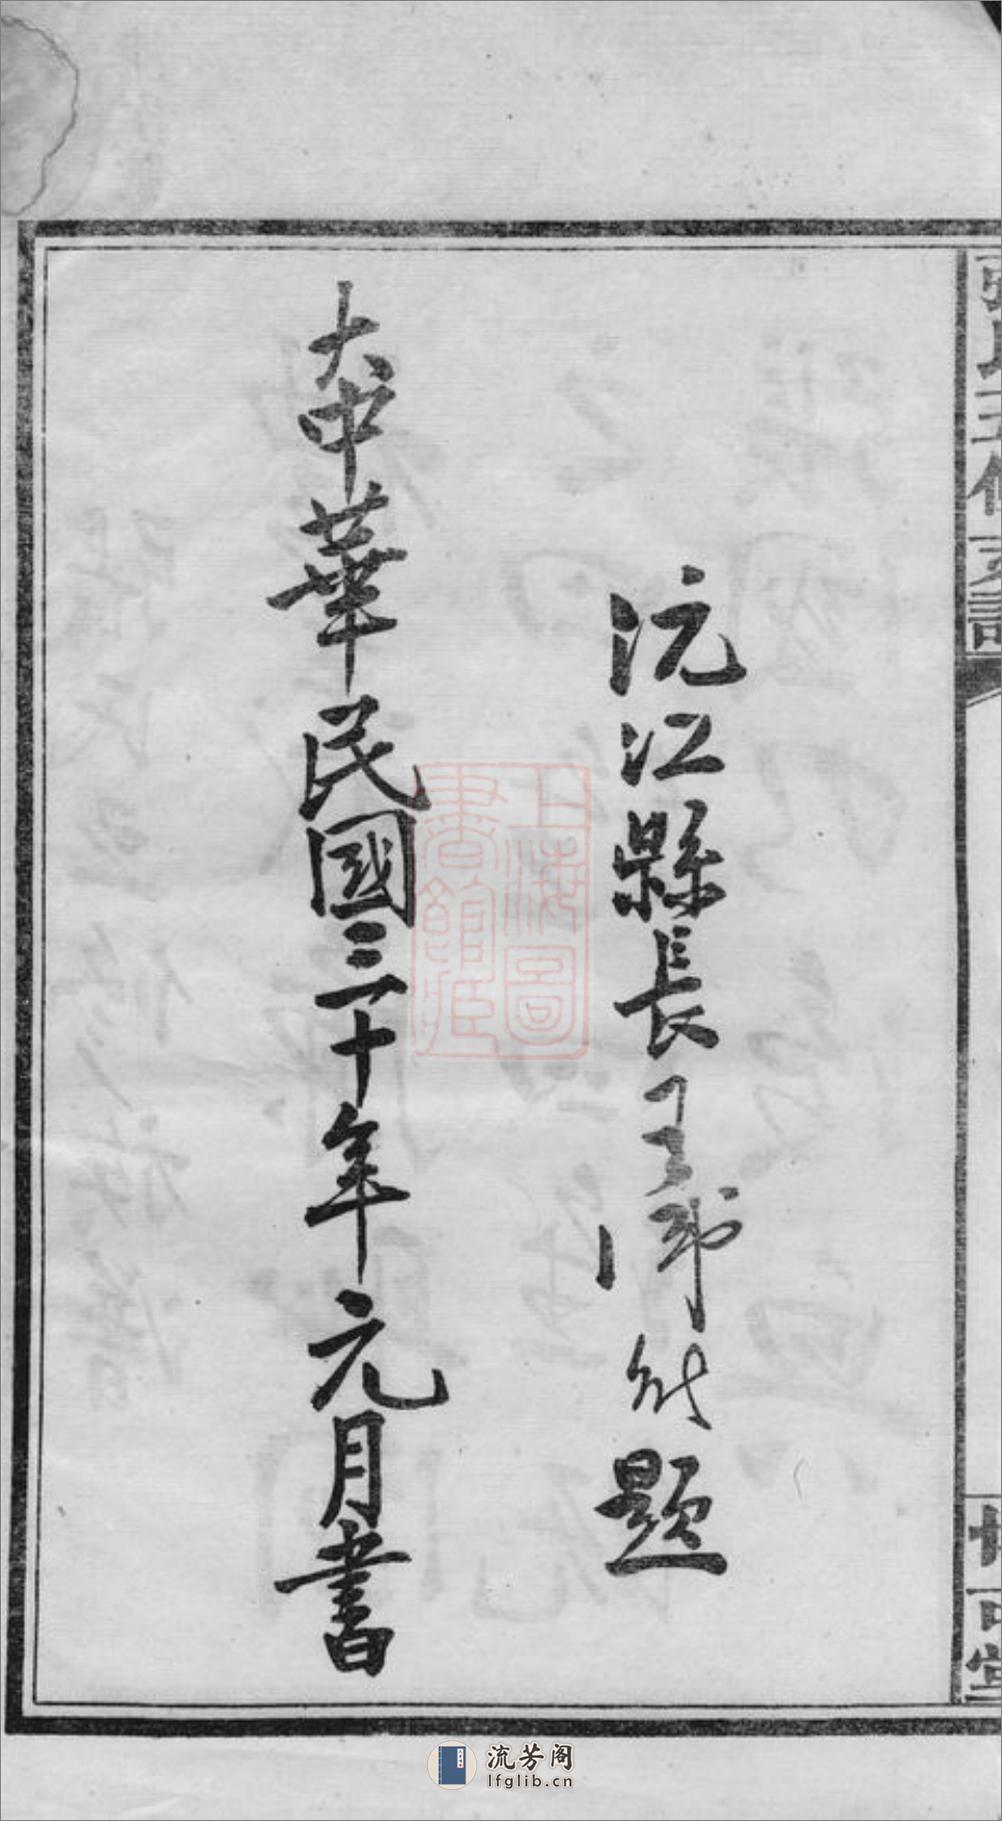 沅江縣長王
題
大中華民國三十年元月書
上海圖書館藏
五修支譜
流芳阁
lfglib.cn